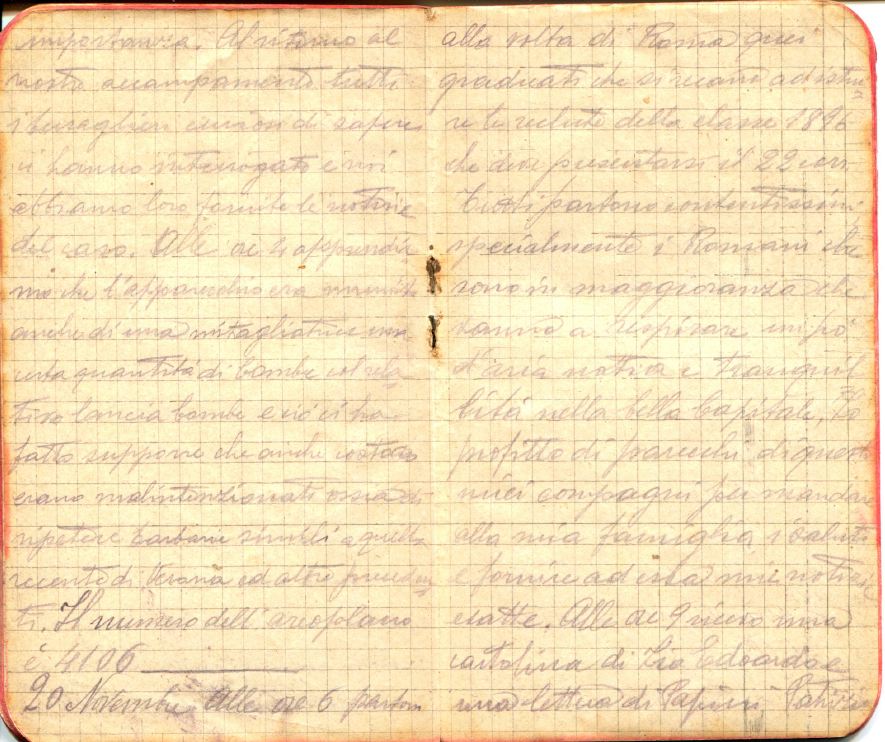 importanza. Al ritorno al
nostro accampamento tutti
i bersaglieri curiosi di sapere
ci hanno interrogato e noi
abbiamo loro fornito le notizie
del caso. Alle ore 2 apprendia
mo che l'apparecchio era munito
anche di una mitagliatrice una
certa quantità di bombe col rela
tivo lancia bombe e ciò ci ha
fatto supporre che anche costoro
erano malintenzionati ossia di
ripetere barbarie simili a quella
recente di Verona ed altre preceden
ti. Il numero dell'areoplano
è 4106
20 Novembre Alle ore 6 partono
alla volta di Roma quei
graduati che si recano ad istru
re le reclute della classe 1896
che deve presentarsi il 22 corr.
Tutti partono contentissimi
specialmente i Romani che
sono in maggioranza che
vanno a respirare un pò
d'aria nativa e tranquil
lità nella bella Capitale, Io
profitto di parecchi di questi
miei compagni per mandare
alla mia famiglia i saluti
e fornire ad essa mie notizie
esatte. Alle ore 9 ricevo una
cartolina di Zio Edoardo e
una lettera di Papini